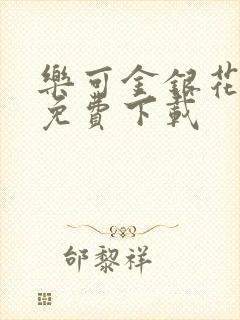 樂可金銀花
免費下載
邰黎祥